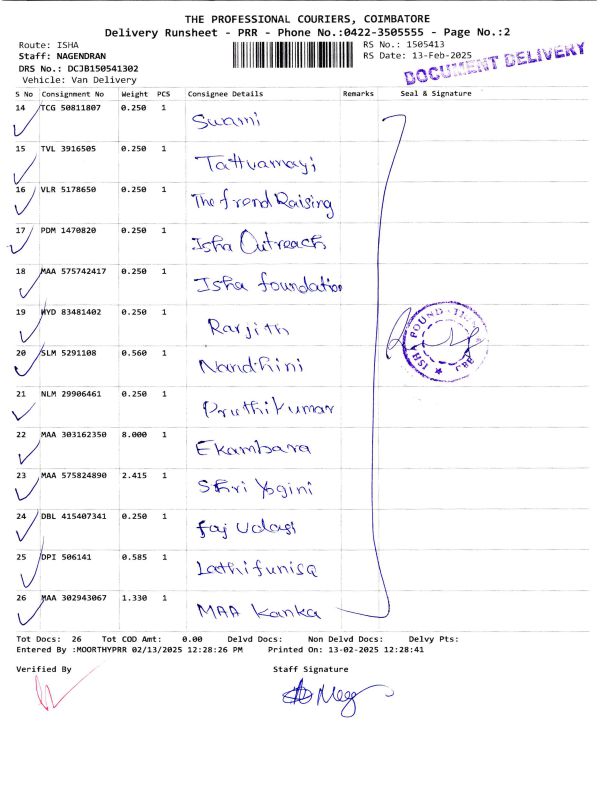 THE PROFESSIONAL COURIERS, COIMBATORE
Delivery Runsheet - PRR - Phone No.:0422-3505555 - Page No.:2
Route: ISHA RS No.: 1505413
Staff: NAGENDRAN RS Date: 13-Feb-2025
DRS No.: DCJB150541302
Vehicle: Van Delivery
DOCUMENT DELIVERY
S No Consignment No Weight PCS Consignee Details Remarks Seal & Signature
14 TCG 50811807 0.250 1 Swami
15 TVL 3916505 0.250 1 Tattvamayi
16 VLR 5178650 0.250 1 The frend Raising
17 PDM 1470820 0.250 1 Isha Outreach
18 MAA 575742417 0.250 1 Isha foundation
19 HYD 83481402 0.250 1 Ranjith
20 SLM 5291108 0.560 1 Nandhini
21 NLM 29906461 0.250 1 Pruthikumar
22 MAA 303162350 8.000 1 Ekambara
23 MAA 575824890 2.415 1 Shri Yogini
24 DBL 415407341 0.250 1
25 DPI 506141 0.585 1 Lathifunisa
26 MAA 302943067 1.330 1 MAA Kanka
ISHA FOUND
Tot Docs: 26 Tot COD Amt: 0.00 Delvd Docs: Non Delvd Docs: Delvy Pts:
Entered By :MOORTHYPRR 02/13/2025 12:28:26 PM Printed On: 13-02-2025 12:28:41
Verified By Staff Signature